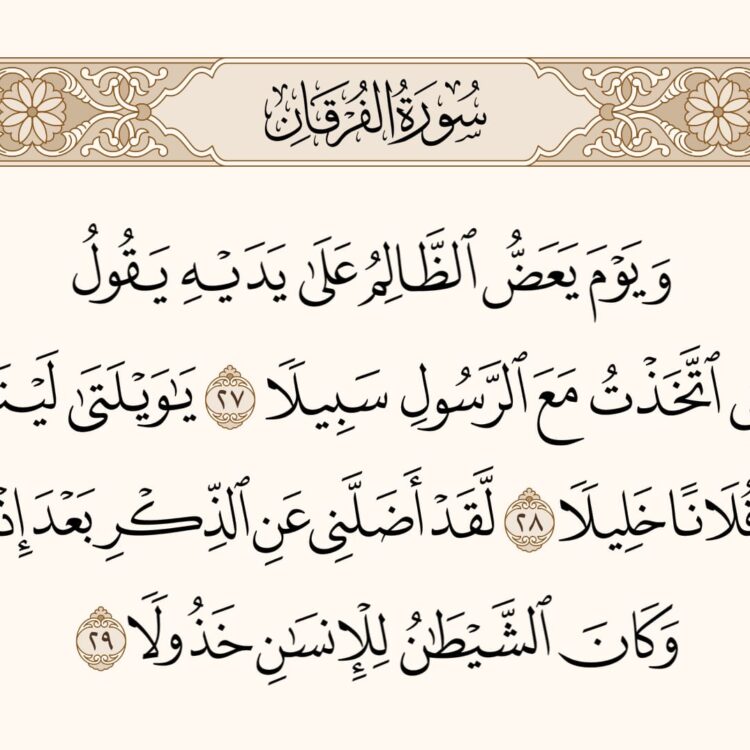 سُورَةُ الفُرْقَانِ
وَيَوْمَ يَعَضُّ ٱلظَّالِمُ عَلَىٰ يَدَيْهِ يَقُولُ
ٱتَّخَذْتُ مَعَ ٱلرَّسُولِ سَبِيلًا ٢٧ يَٰوَيْلَتَىٰ
فُلَانًا خَلِيلًا ٢٨ لَّقَدْ أَضَلَّنِى عَنِ ٱلذِّكْرِ بَعْدَ إِذْ
وَكَانَ ٱلشَّيْطَٰنُ لِلْإِنسَٰنِ خَذُولًا ٢٩